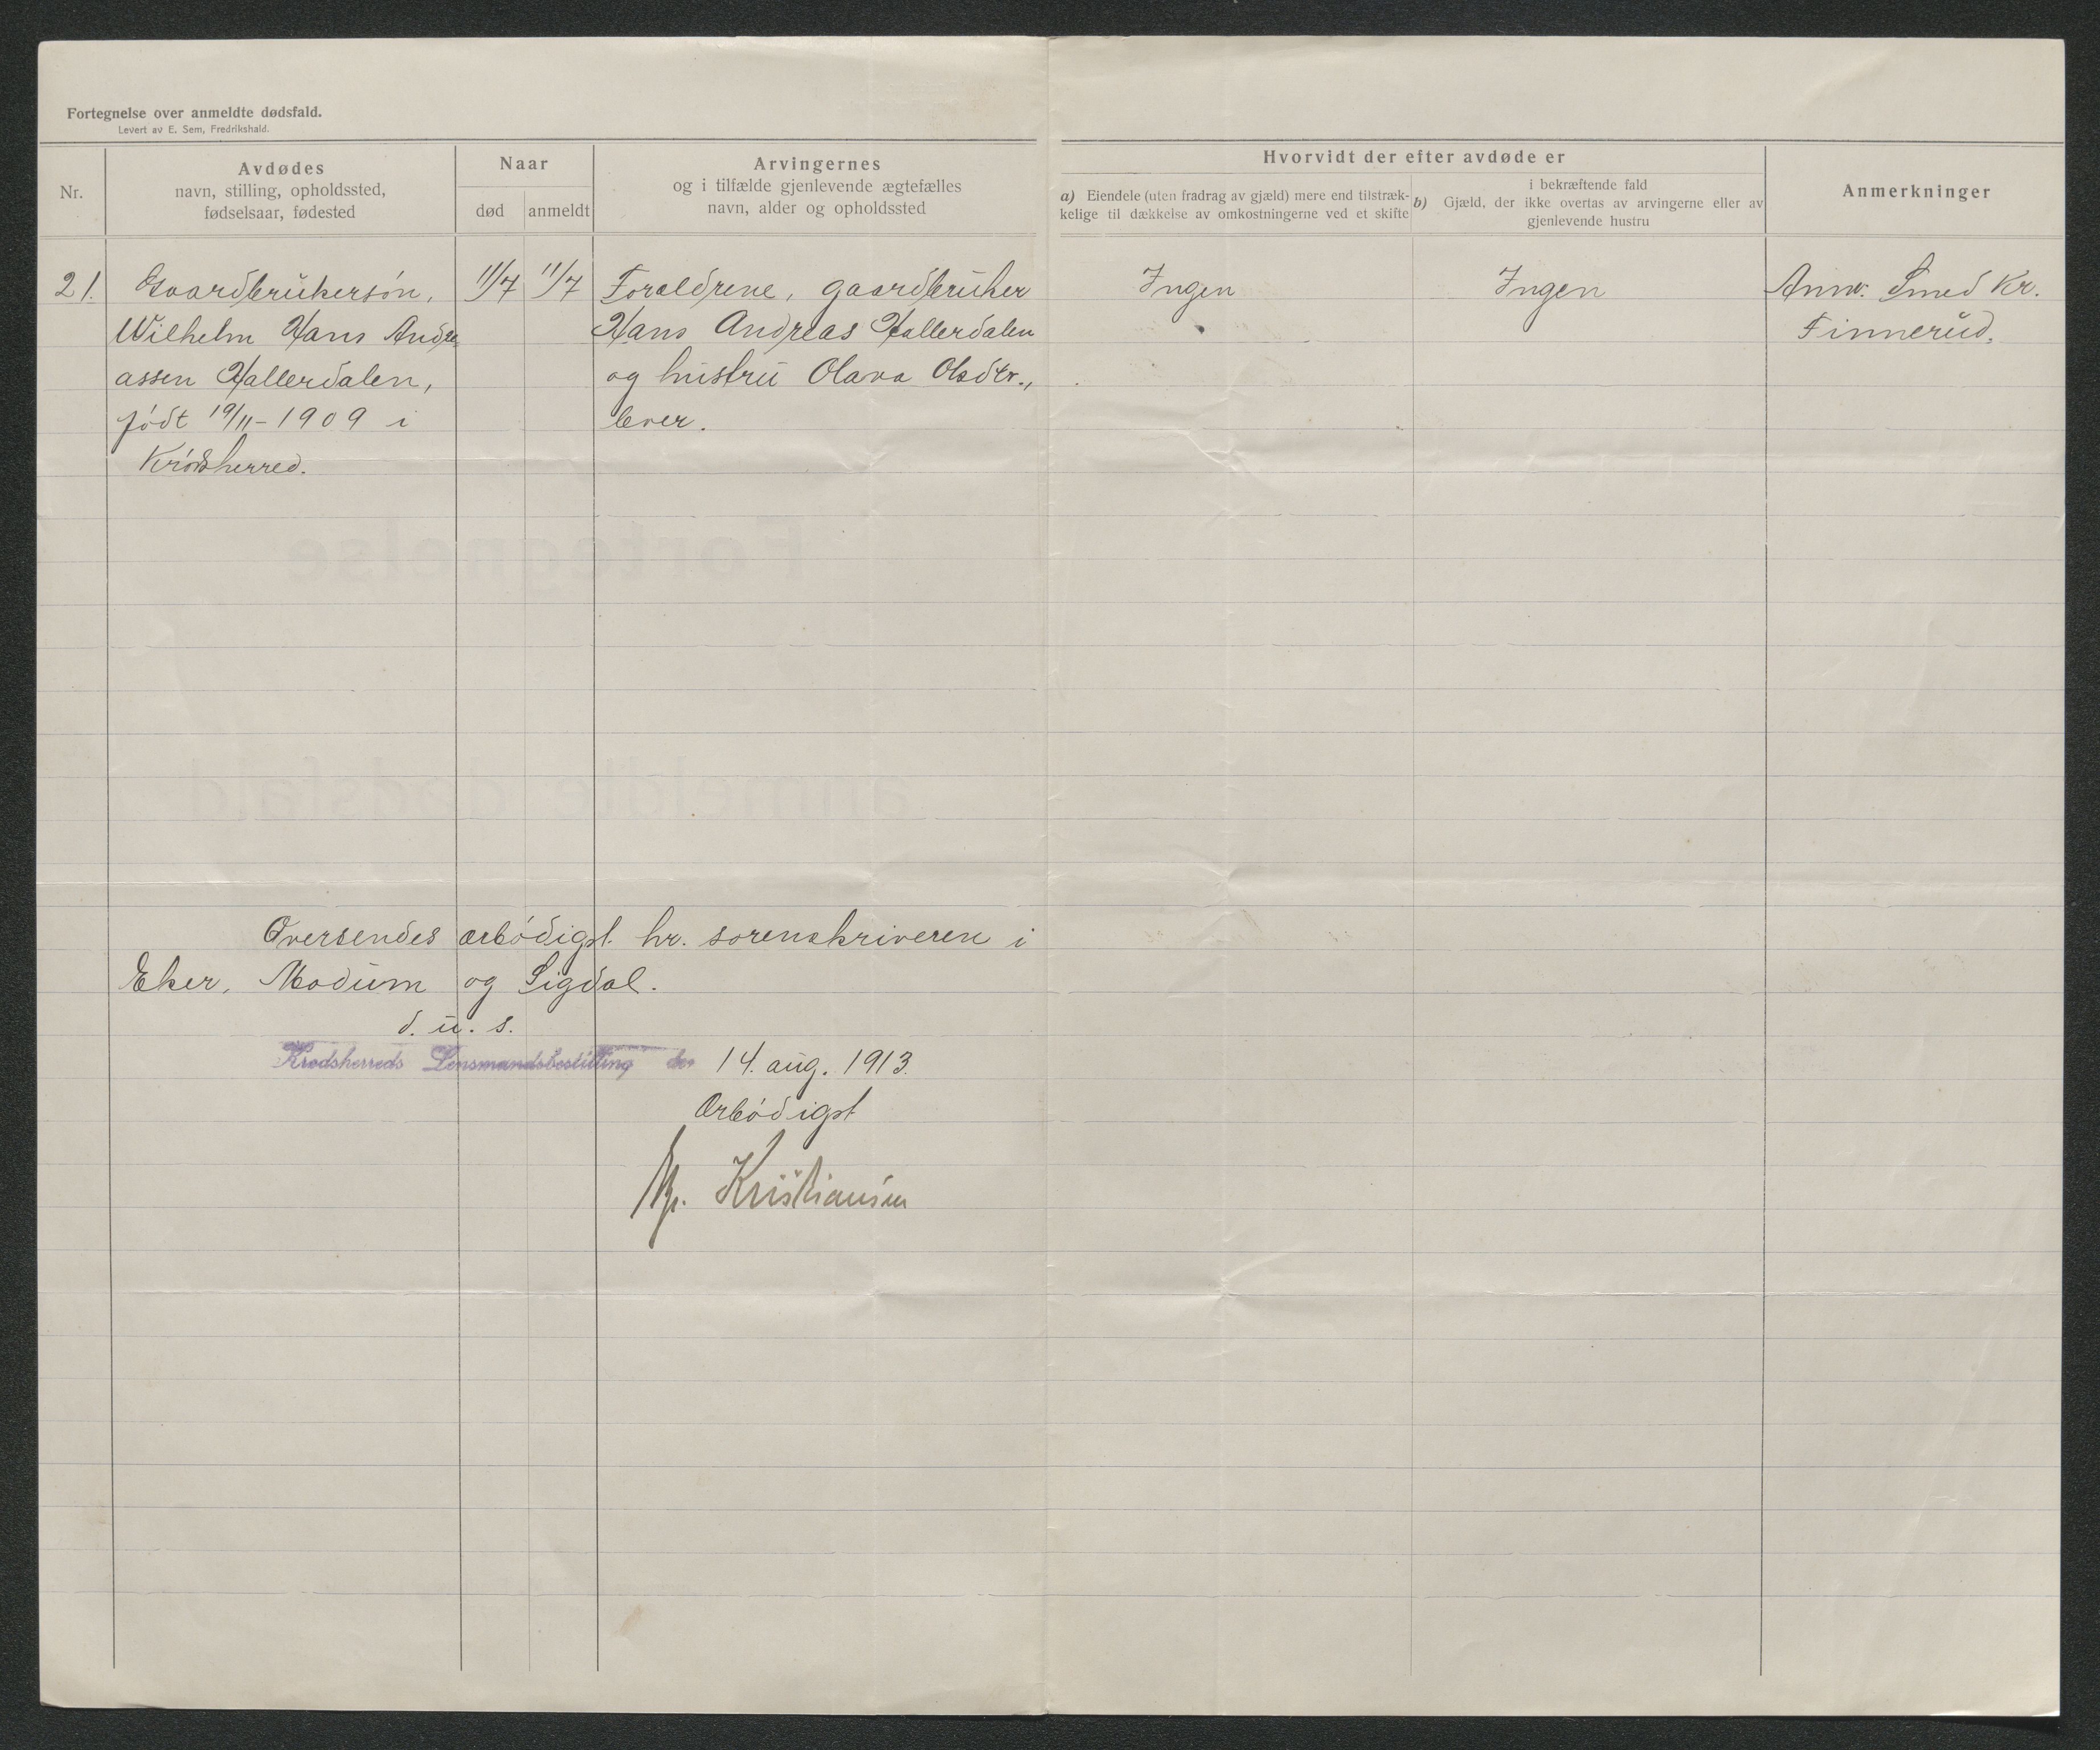 Fortegnelse over anmeldte dødsfald.
Levert av E. Sem, Fredrikshald.
Nr.
Avdødes
navn, stilling, opholdssted,
fødselsaar, fødested
Naar
død
anmeldt
Arvingernes
og i tilfælde gjenlevende ægtefælles
navn, alder og opholdssted
Hvorvidt der efter avdøde er
a) Eiendele (uten fradrag av gjæld) mere end tilstræk-
kelige til dækkelse av omkostningerne ved et skifte
i bekræftende fald
b) Gjæld, der ikke overtas av arvingerne eller av
gjenlevende hustru
Anmerkninger
21.
Gaardbrukersøn,
Wilhelm Hans Andre
assen Hallerdalen,
født 19/11-1909 i
Krødsherred.
11/7
11/7
Forældrene, gaardbruker
Hans Andreas Hallerdalen
og hustru Olava Olsdtr.,
lever.
Ingen
Ingen
Anm. Smed Kr.
Finnerud.
Oversendes ærbødigst hr. sorenskriveren i
Eker, Modum og Sigdal.
d. u. s.
Krødsherreds Lensmandsbestilling den 14. aug. 1913.
Ærbødigst
Kristiansen